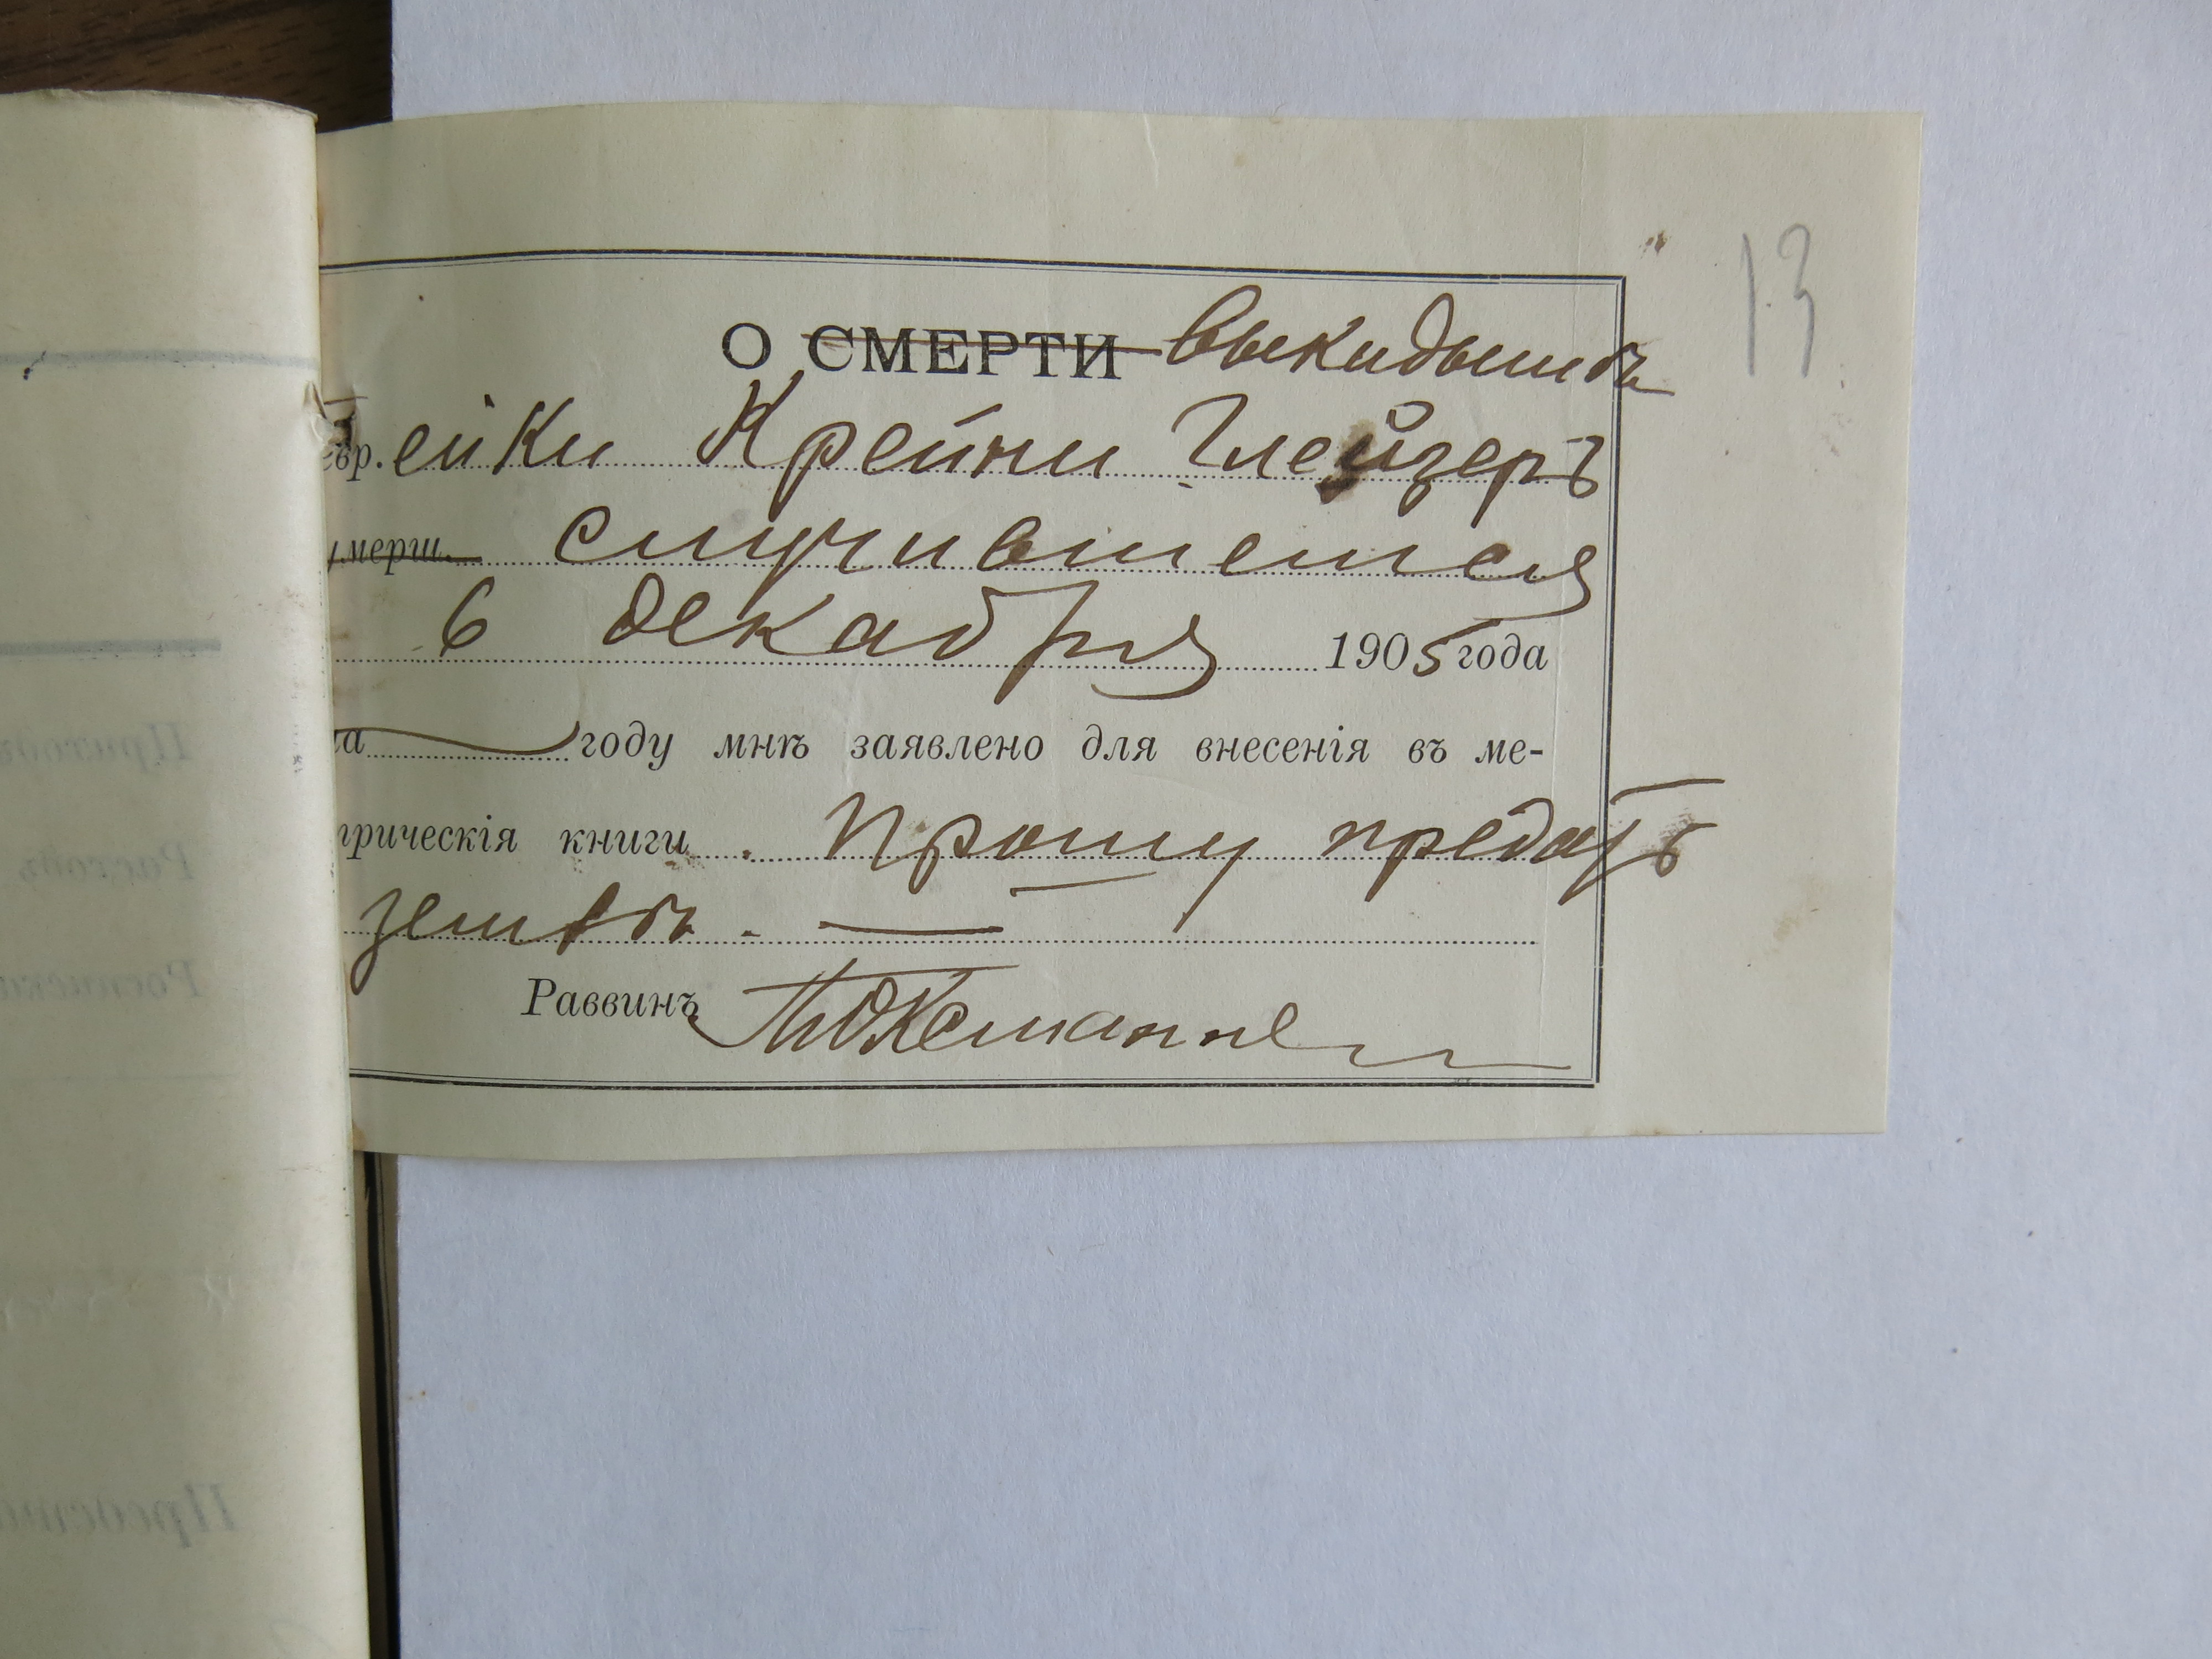 13
О СМЕРТИ выкидышѣ
евр. ейки Крейни Глейзеръ
умерш. случившемся
6 декабря 1905 года
за году мнѣ заявлено для внесенія въ ме-
трическія книги. Прошу предать
землѣ.
Раввинъ
Приходъ
Расходъ